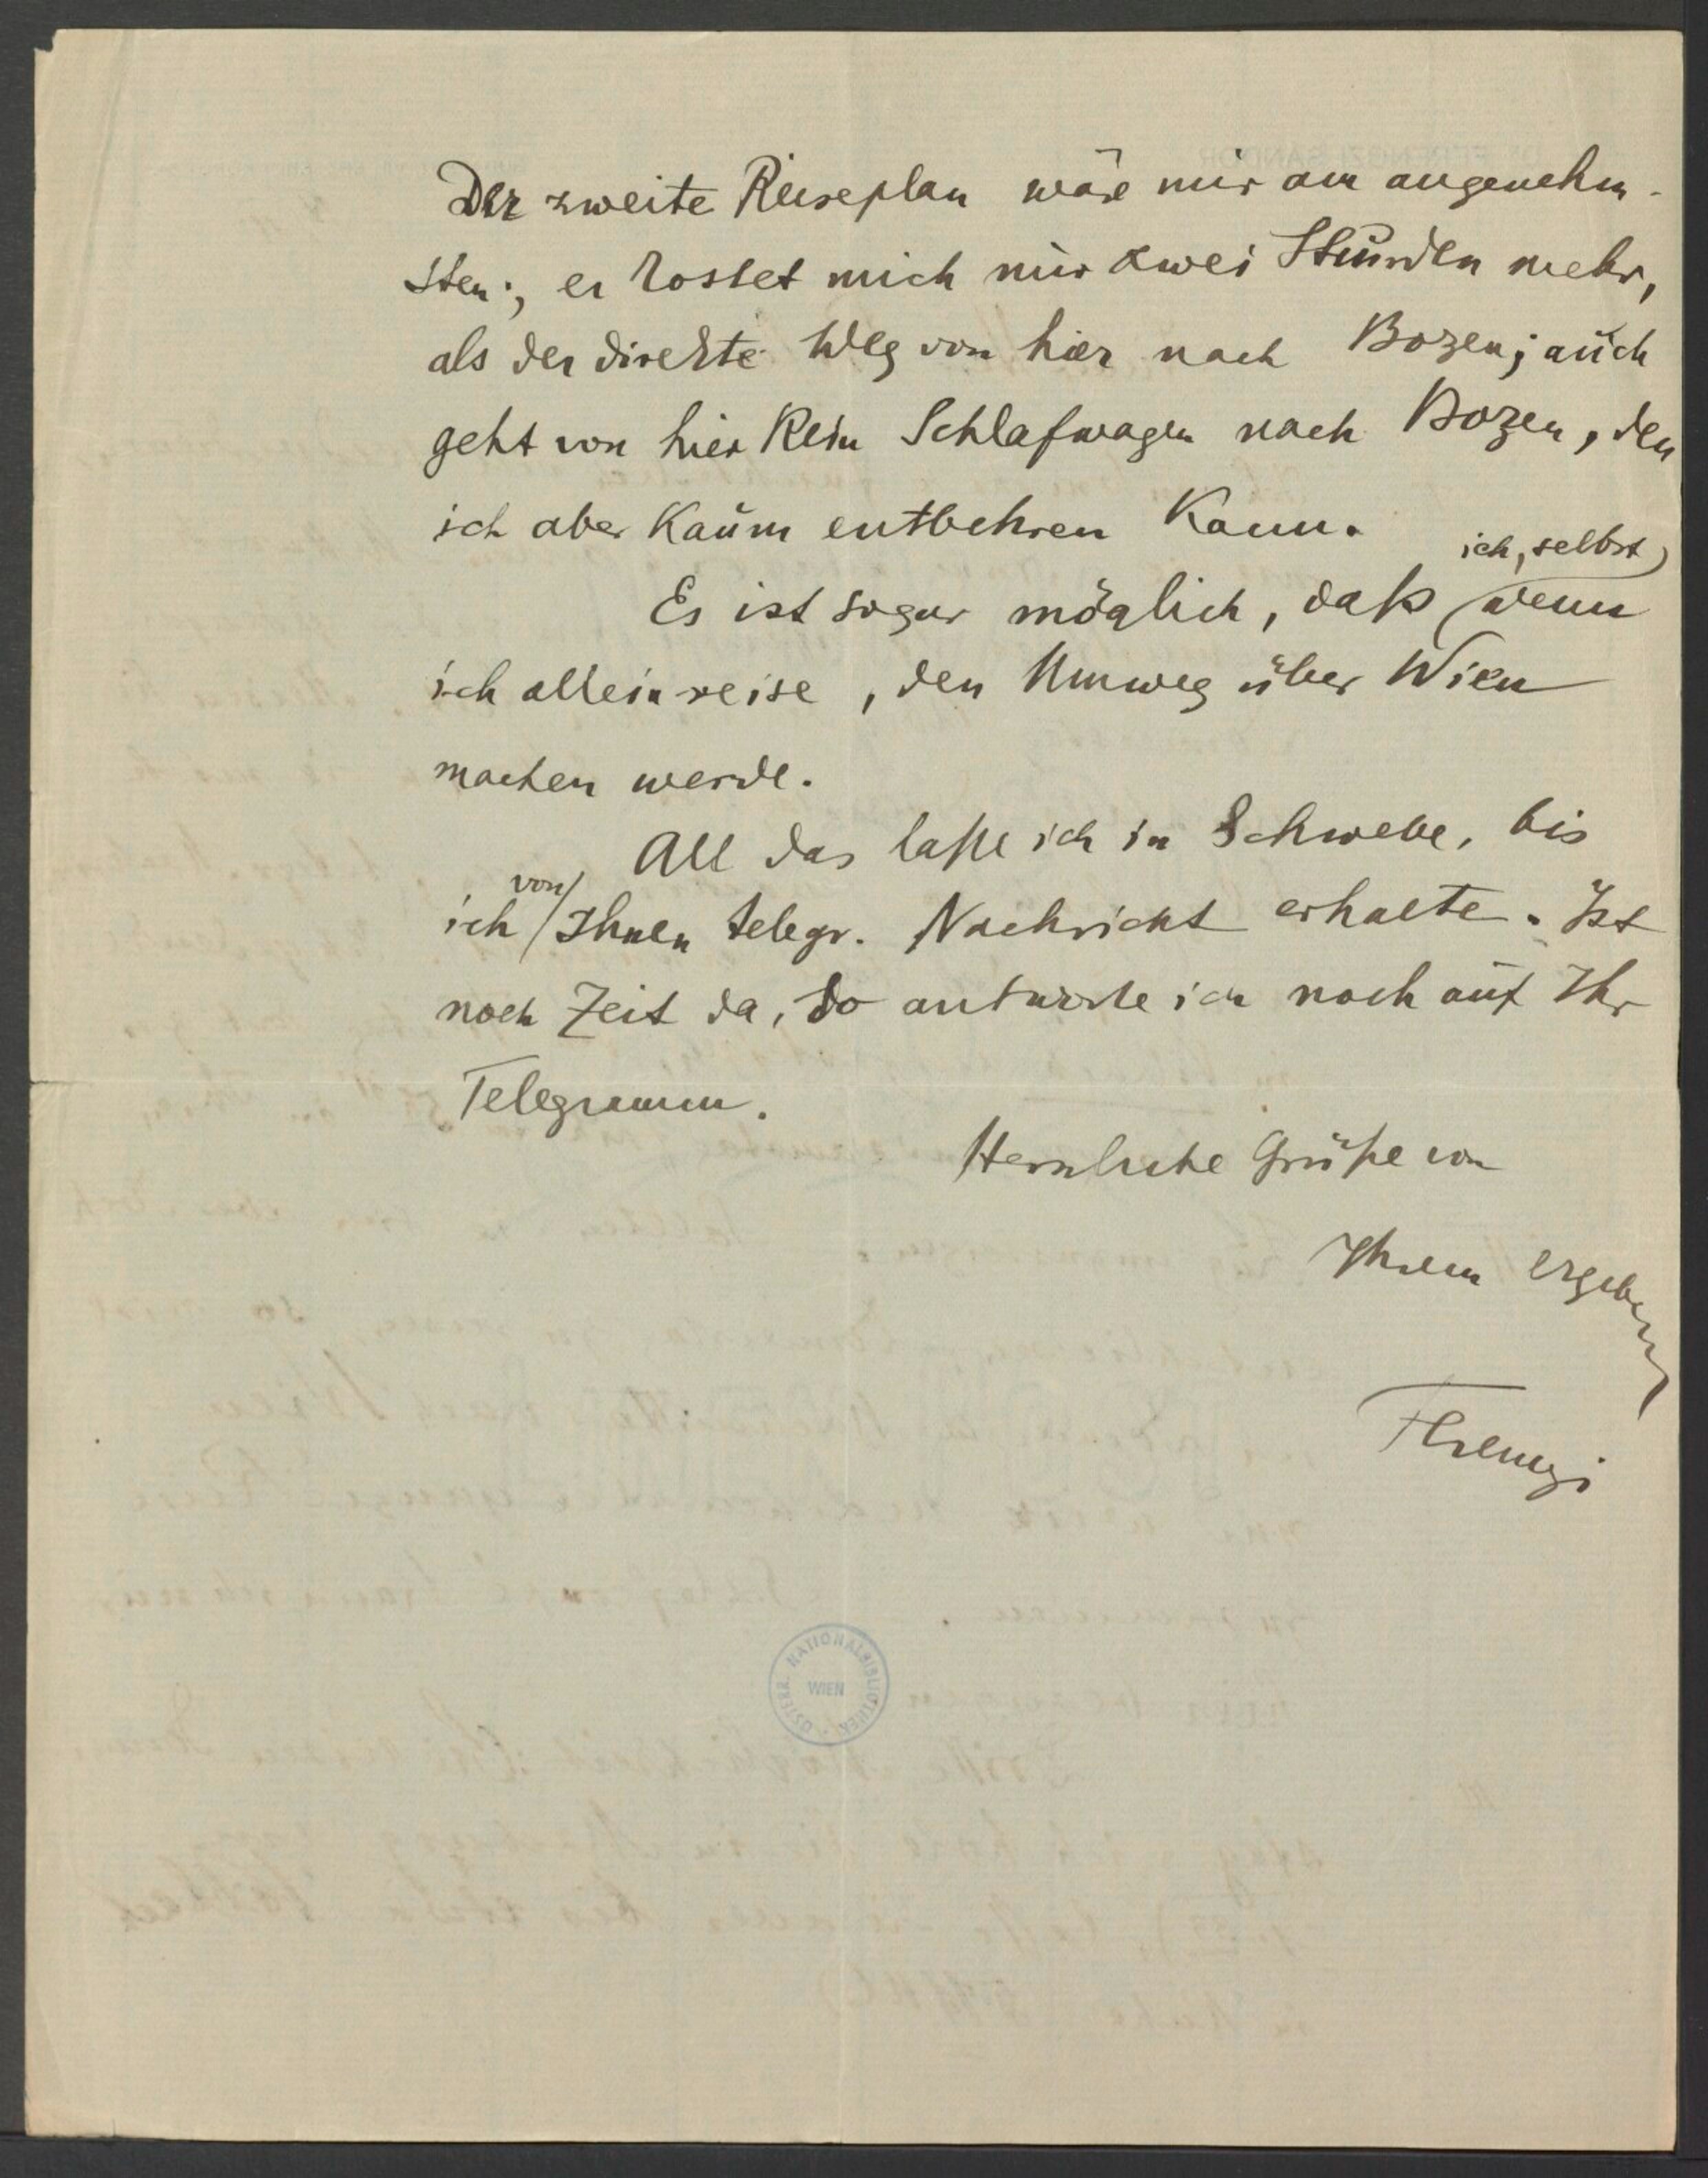 Der zweite Reiseplan wäre mir am angenehm-
sten; er kostet mich nur zwei Stunden mehr,
als der direkte Weg von hier nach Bozen; auch
geht von hier kein Schlafwagen nach Bozen, den
ich aber kaum entbehren kann.
Es ist sogar möglich, daß ich, selbst wenn
ich allein reise, den Umweg über Wien
machen werde.
All das laße ich in Schwebe, bis
ich von Ihnen telegr. Nachricht erhalte. Ist
noch Zeit da, so antworte ich noch auf Ihr
Telegramm.
Herzliche Grüße von
Ihrem ergebenen
Ferenczi
ÖSTERR. NATIONALBIBLIOTHEK
WIEN